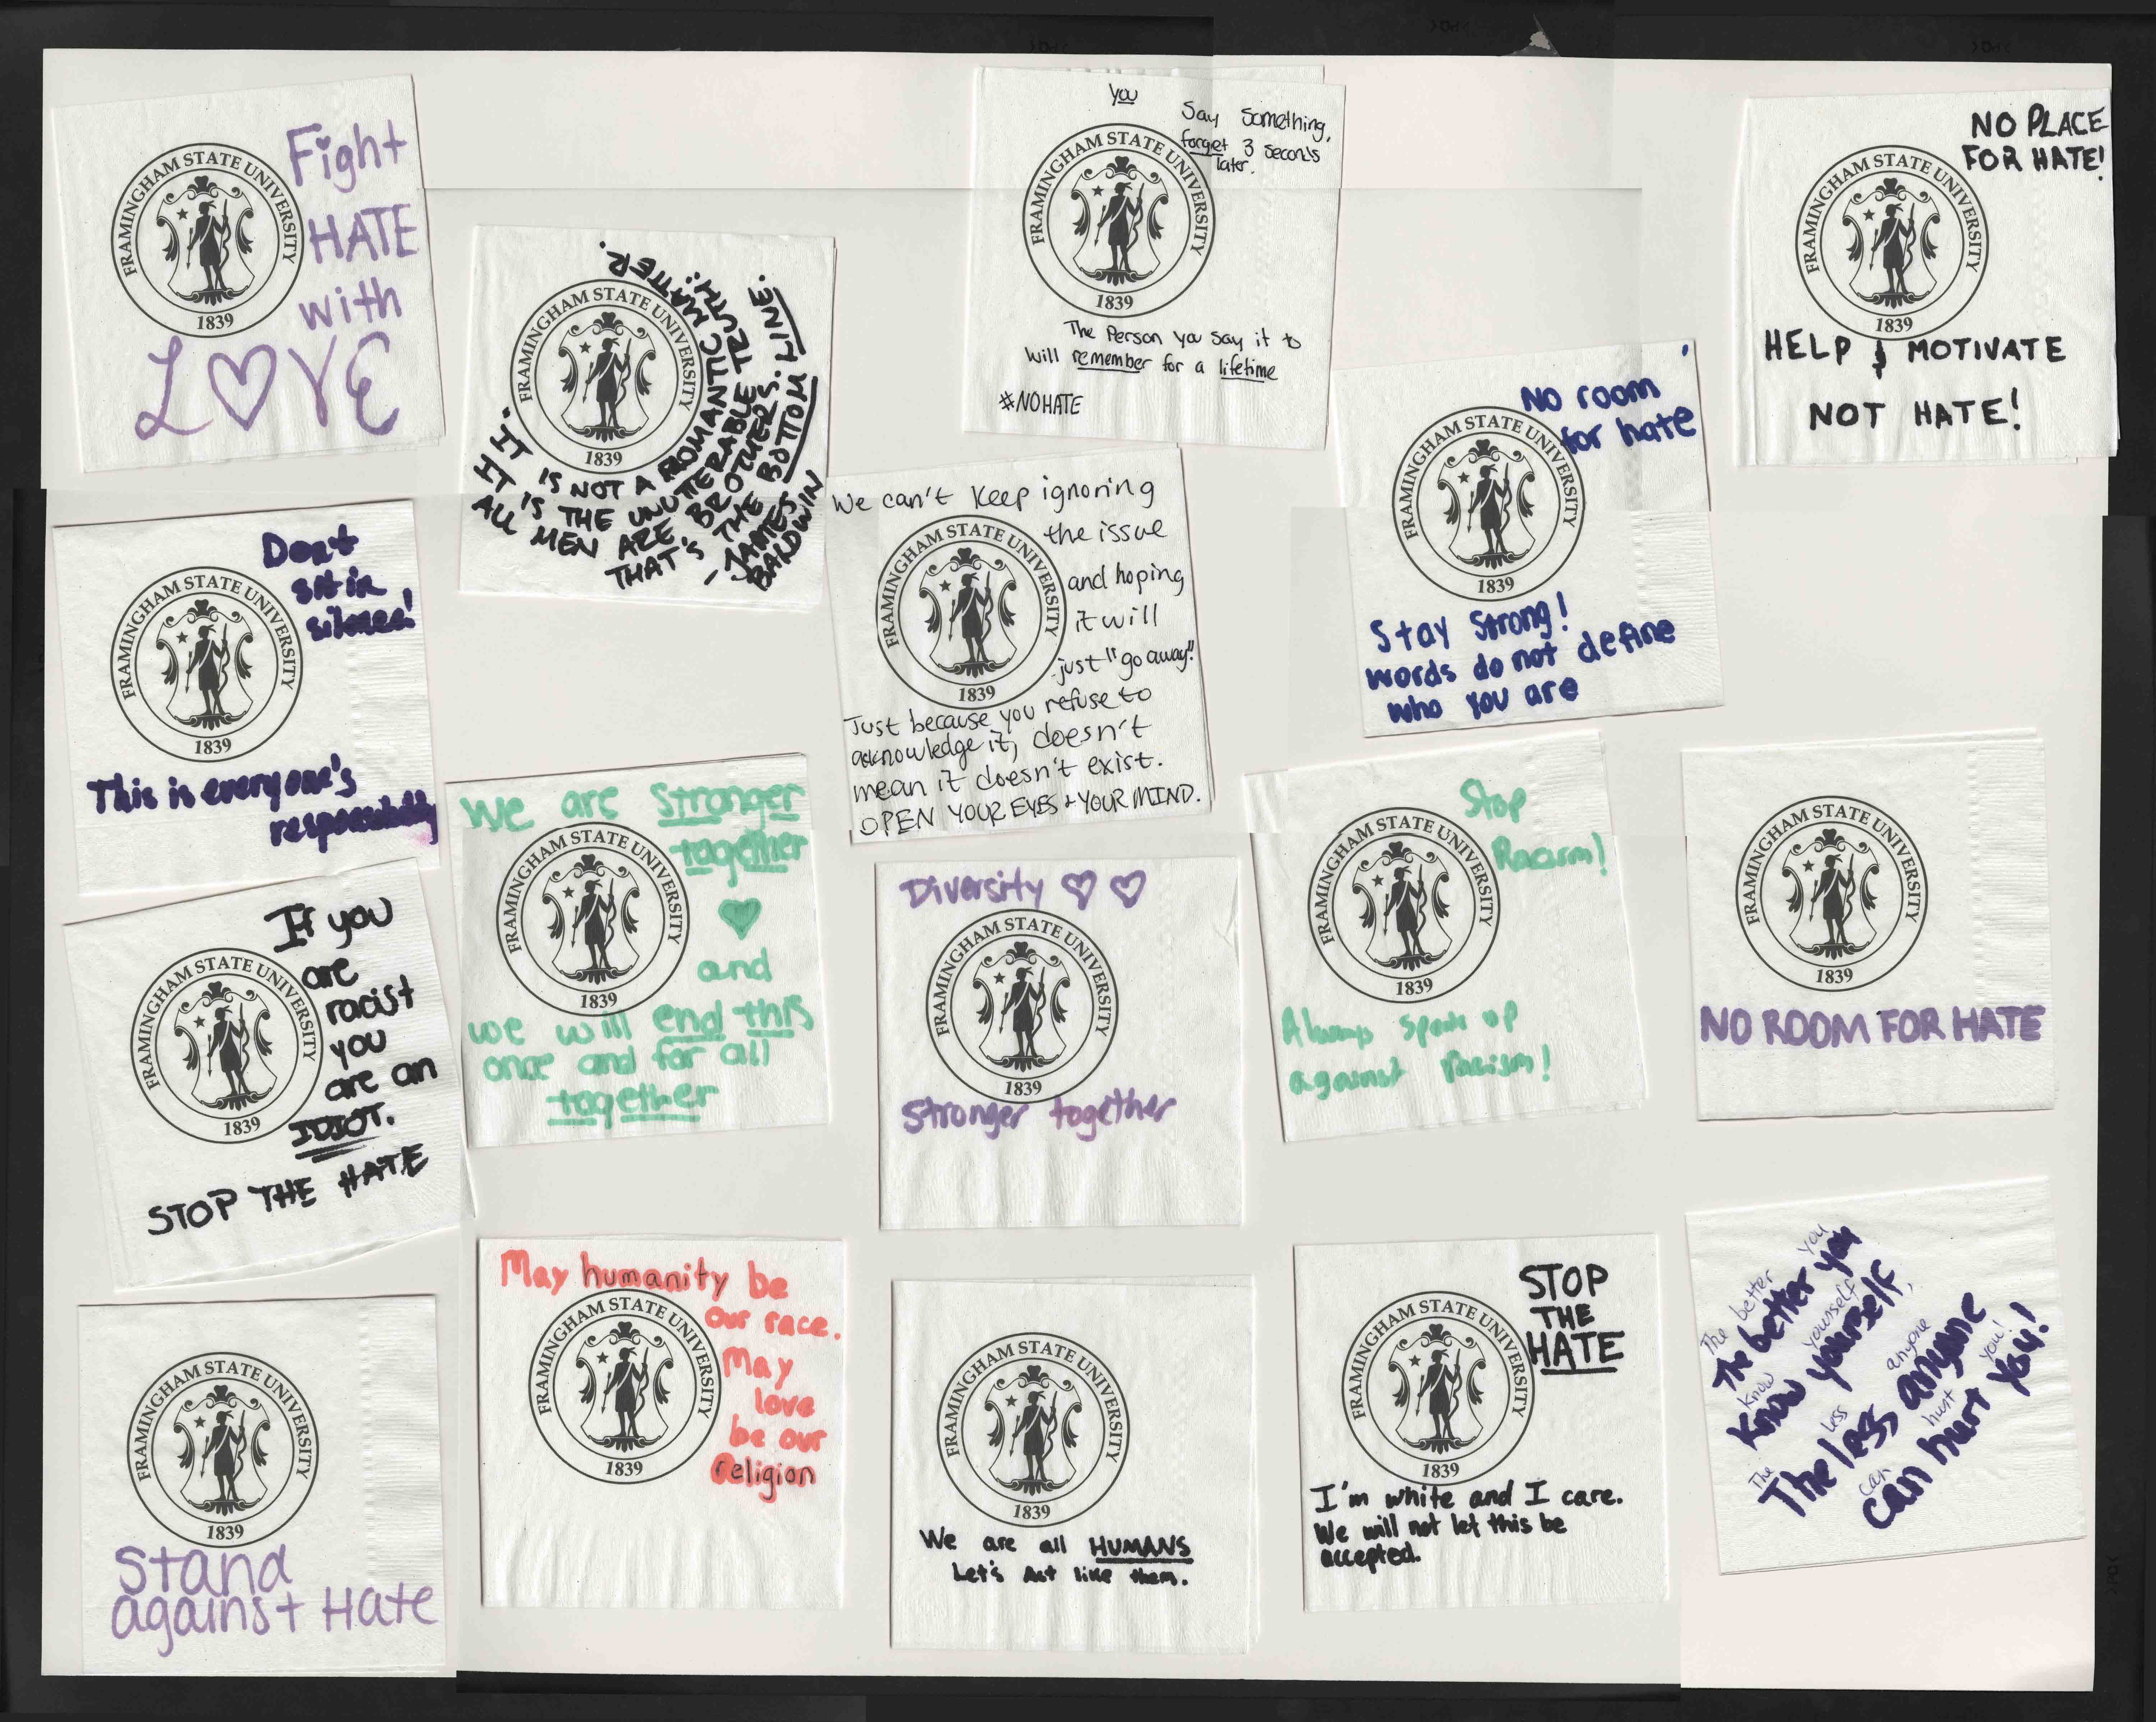 Fight
HATE
with
LOVE
FRAMINGHAM STATE UNIVERSITY
1839
"IT IS NOT A ROMANTIC MATTER.
IT IS THE UNUTTERABLE TRUTH:
ALL MEN ARE BROTHERS.
THAT'S THE BOTTOM LINE.
- JAMES
BALDWIN
FRAMINGHAM STATE UNIVERSITY
1839
You
Say something,
forget 3 seconds
later.
FRAMINGHAM STATE UNIVERSITY
1839
The Person you say it to
will remember for a lifetime
#NOHATE
NO PLACE
FOR HATE!
FRAMINGHAM STATE UNIVERSITY
1839
HELP & MOTIVATE
NOT HATE!
No room
for hate
FRAMINGHAM STATE UNIVERSITY
1839
Stay Strong!
words do not define
who you are
We can't keep ignoring
the issue
and hoping
it will
just "go away"!
FRAMINGHAM STATE UNIVERSITY
1839
Just because you refuse to
acknowledge it, doesn't
mean it doesn't exist.
OPEN YOUR EYES + YOUR MIND.
Don't
sit in
silence!
FRAMINGHAM STATE UNIVERSITY
1839
This is everyone's
responsibility
We are stronger
together
and
FRAMINGHAM STATE UNIVERSITY
1839
we will end this
once and for all
together
Stop
Racism!
FRAMINGHAM STATE UNIVERSITY
1839
Always speak up
against racism!
FRAMINGHAM STATE UNIVERSITY
1839
NO ROOM FOR HATE
If you
are
racist
you
are an
IDIOT.
FRAMINGHAM STATE UNIVERSITY
1839
STOP THE HATE
Diversity
FRAMINGHAM STATE UNIVERSITY
1839
Stronger together
May humanity be
our race.
May
love
be our
religion
FRAMINGHAM STATE UNIVERSITY
1839
FRAMINGHAM STATE UNIVERSITY
1839
Stand
against Hate
FRAMINGHAM STATE UNIVERSITY
1839
We are all HUMANS
Let's Act like them.
STOP
THE
HATE
FRAMINGHAM STATE UNIVERSITY
1839
I'm white and I care.
We will not let this be
accepted.
The better you
The better you
know yourself,
know yourself,
The less anyone
The less anyone
can hurt you!
can hurt you!